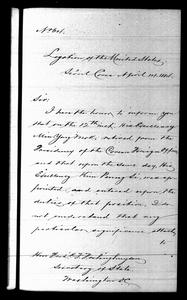 No. 64.
Legation of the United States,
Séoul Corea April
Sir:
I have the honor to inform you
that on the 12th inst. His Excellency
Min Yong Mok, retired from the
Presidency of the Corean Foreign Office
and that upon the same day, His
Excellency Kim Piong Si, was ap-
pointed, and entered upon the
duties of that position. I do
not understand that any
particular significance attaches
to
Hon: Fredk. T. Frelinghuysen
Secretary of State
Washington D.C.